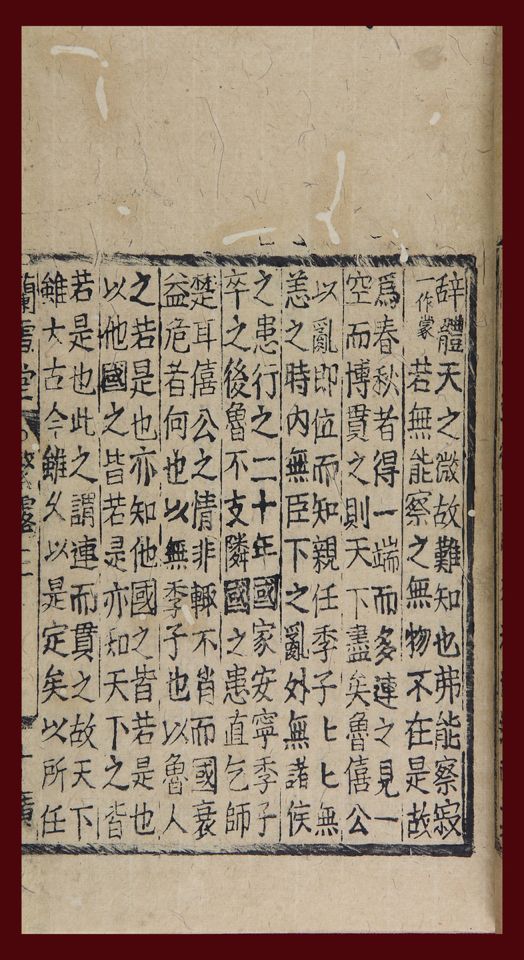 辞體天之微故難知也弗能察寂
一作蒙若無能察之無物不在是故
爲春秋者得一端而多連之見一
空而博貫之則天下盡矣魯僖公
以亂即位而知親任季子匕匕無
恙之時内無臣下之亂外無諸侯
之患行之二十年國家安寧季子
卒之後魯不支隣國之患直乞師
楚耳僖公之情非輙不肖而國衰
益危者何也以無季子也以魯人
之若是也亦知他國之皆若是也
以他國之皆若是亦知天下之皆
若是也此之謂連而貫之故天下
雖大古今雖久以是定矣以所任
蘭雪堂